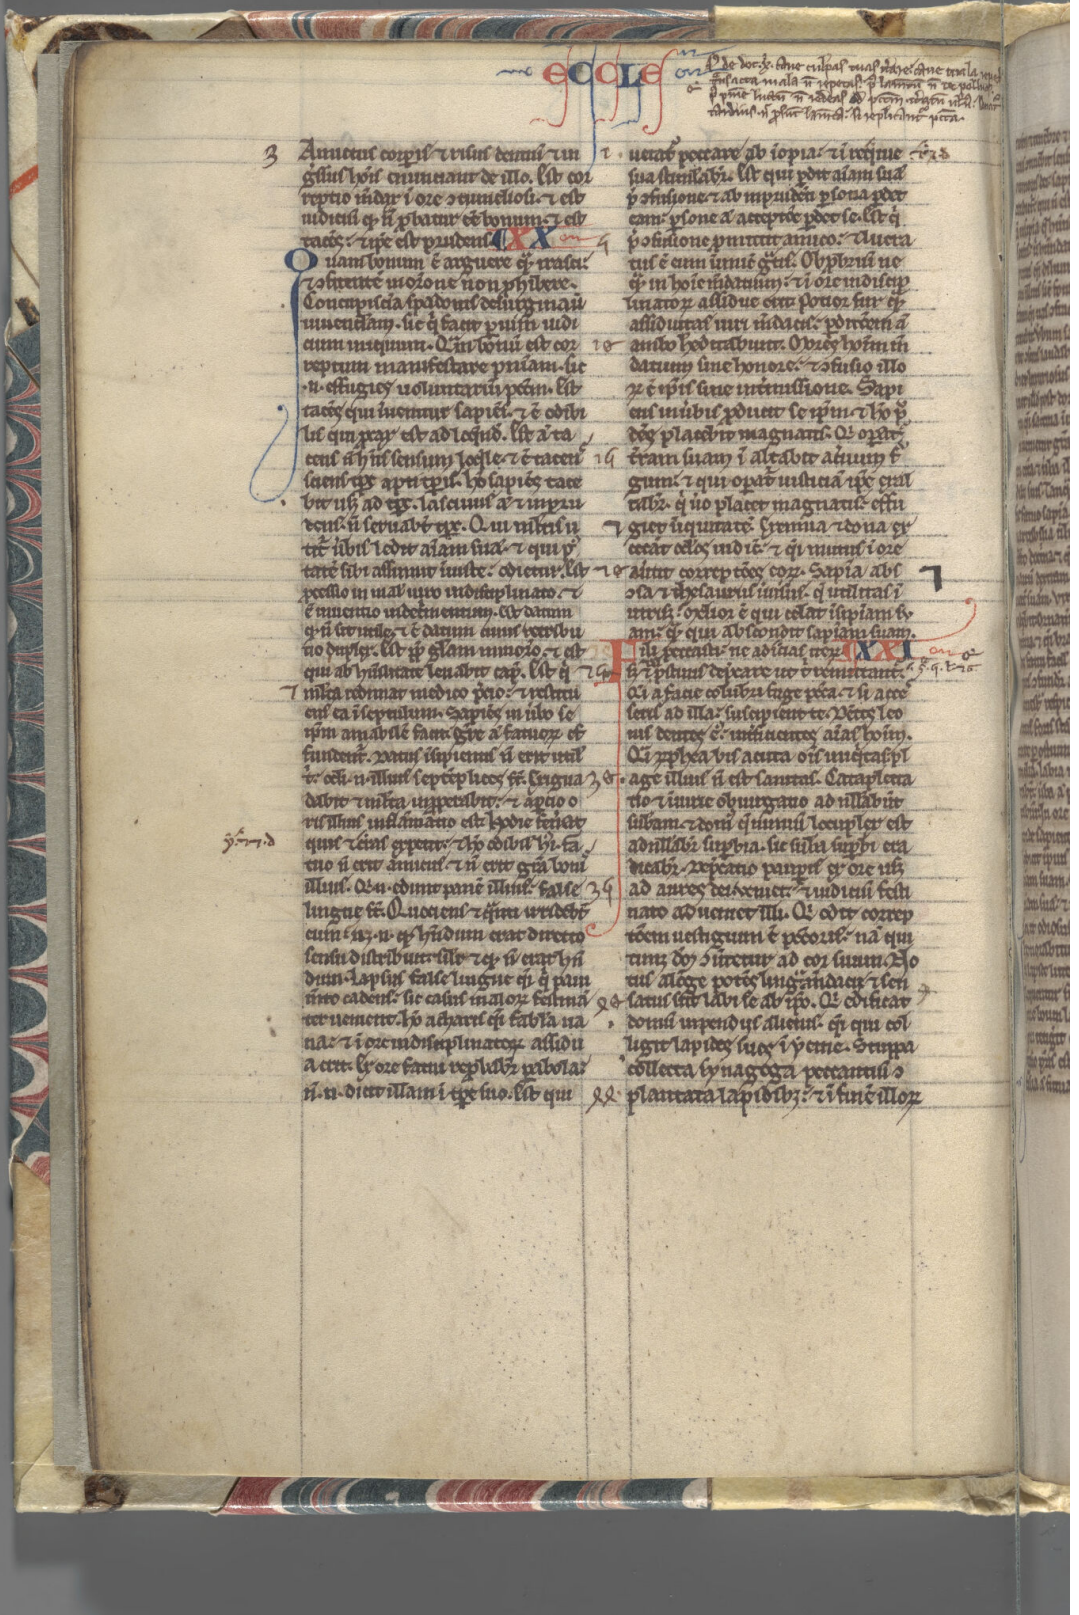 eccles
Amictus corp̄is ⁊ risus dentiū ⁊ in
gressus hoīs enunciant de illo. Est cor
reptio m̄dax ī ore ꝯtumeliosi. ⁊ est
iudiciū qd̄ n̄ ꝓbatur eē bonum. ⁊ est
tacēs. ⁊ ip̄e est prudens. XX
Quam bonum ē arguere qͣ̄ irasci.
⁊ ꝯfitentē in orōne non ꝓhibere.
Concupiscīa spadonis deuirginauit
iuuenculam. sic qͥ facit ꝑ uim iudi
cium iniquum. Qͣm bonū est cor
reptum manifestare pnīam. sic
.n. effugies uoluntariū pctm̄. Est
tacēs qui īuenitur sapiēs. ⁊ ē odibi
lis qui procax est ad loqͥnd̄. Est ā ta
cens n̄ hn̄s sensum loqͤle. ⁊ ē tacens
sciens tp̄s apti tp̄is. hō sapiēs tace
bit usqꝫ ad tp̄s. lasciuus ā ⁊ inpru
dens. n̄ seruabt̄ tp̄s. Qui ml̄tis u
titͬ ūbis ledit aīam suā. ⁊ qui po
tatē sibi assumit īiuste. odietur. Est
ꝓcessio in mal̄ uiro indisciplinato. ⁊
ē inuentio in detrimentum. Est datum
qd̄ n̄ sit utile. ⁊ ē datum cuius retribu
tio duplex. Est ꝓp̄ gl̄am minorō. ⁊ est
qui ab hūilitate leuabit cap̄. Est qͥ
ml̄ta redimat modico p̄cio. ⁊ restitu
ens ea ī septuplum. Sapiēs in ūbo se
ip̄m amabilē facit. gr̄e ā fatuorꝫ ef
fundentͬ. Datus īsipientis n̄ erit util̄
t̄. ocl̄i .n. illius septēplices st̄. Exigua
dabit ⁊ ml̄ta inꝓperabit. ⁊ aꝑtio o
ris illius inflāmatio est. hodie fen̄at
quis ⁊ cras expetit. ⁊ hō odibilis hͥ. fa
tuo n̄ erit amicus. ⁊ n̄ erit grā bonis
illius. Qui .n. edunt panē illius. false
lingue st̄. Quociens ⁊ qͣnti irridebt̄
eum. neqꝫ .n. qd̄ hn̄dum erat directo
sensu distribuit. silr̄ ⁊ qd̄ n̄ erat hn̄
dum. Lapsus false lingue qͣi qͥ paui
m̄to cadens. sic casus malorꝫ festina
ter uenient. hō acharis qͣi fabl̄a ua
na. ⁊ ī ore indisciplinatorꝫ assidu
a erit. Ex ore fatui reprobabr̄ parabola.
n̄ .n. dicit illam ī tp̄e suo. Est qui
uetatͬ peccare ab īopia. ⁊ ī reqͥe
sua stimlabr̄. Est qui ꝑdit aīam suā
p̄ ꝯfusione. ⁊ ab inprudēti ꝑsona ꝑdet
eam. ꝑsone ā acceptōe ꝑdet se. Est qͥ
p̄ ꝯfusione ꝓmittit amico. ⁊ lucra
tus ē eum inimicū gͣtis. Obprobriū ne
qͣ in hoīe m̄datium. ⁊ ī ore indiscip
linatorꝫ assidue erit. Potior fur qͣ
assiduitas uiri m̄dacis. ꝑditōem ā
ambo hēditabunt. Mores hoīm m̄
datium sine honore. ⁊ ꝯfusio illo
rꝫ ē ip̄is sine int̄missione. Sapi
ens in ūbis ꝓducit se ip̄m. ⁊ hō pͬ
dēs placebit magnatis. Qͥ opatͬ
t̄ram suam ī altabit aceruum fͬ
gum. ⁊ qui opatͬ iusticiā ip̄e exal
tabr̄. qͥ uo placet magnatis. effu
giet iniquitatē. Exenia ⁊ dona ex
cecāt oclōs iudicū. ⁊ qͣi mutus ī ore
auertit correptōes eorꝫ. Sapīa abs
ꝯsa ⁊ thesaurus īuisus. q̄ utilitas ī
utrisqꝫ. Melior ē qui celat īsipīam su
am. qͣ qui abscondit sapīam suam.
Fili peccasti. ne adicias iterꝫ XXI
sꝫ ⁊ p̄stinis dep̄care ut t̄ remittant̄.
Qͣsi a facie colubri fuge pctā. ⁊ si acce
sseris ad illa. suscipient te. Dētes leo
nis dentes eͥ. int̄ficientes aīas hoīm.
Qͣi rōphea bis acuta oīs iniqͥtas. pl
age illius n̄ est sanitas. Catapleta
tio ⁊ iniurie obiurgatio adnullabūt
subam. ⁊ dom̄ q̄ nimiū locuplex est
adnullabr̄ suꝑbia. sic suba suꝑbi era
dicabr̄. Dep̄catio pauꝑis ex ore usqꝫ
ad aures dei ueniet. ⁊ iudiciū festi
nato adueniet illi. Qͥ odit correp
tōem uestigium ē pctōris. nā qui
timꝫ dm̄ ꝯuertetur ad cor suum. No
tus alonge potēs lingua mendaci ⁊ sen
satus scit labi se ab ip̄o. Qͥ edificat
domū inpendijs alienis. qͣi qui col
ligit lapides suos ī yeme. Stuppa
collecta synagoga peccantiū ꝯ
plantata lapidibꝫ. ⁊ ī fine illorꝫ